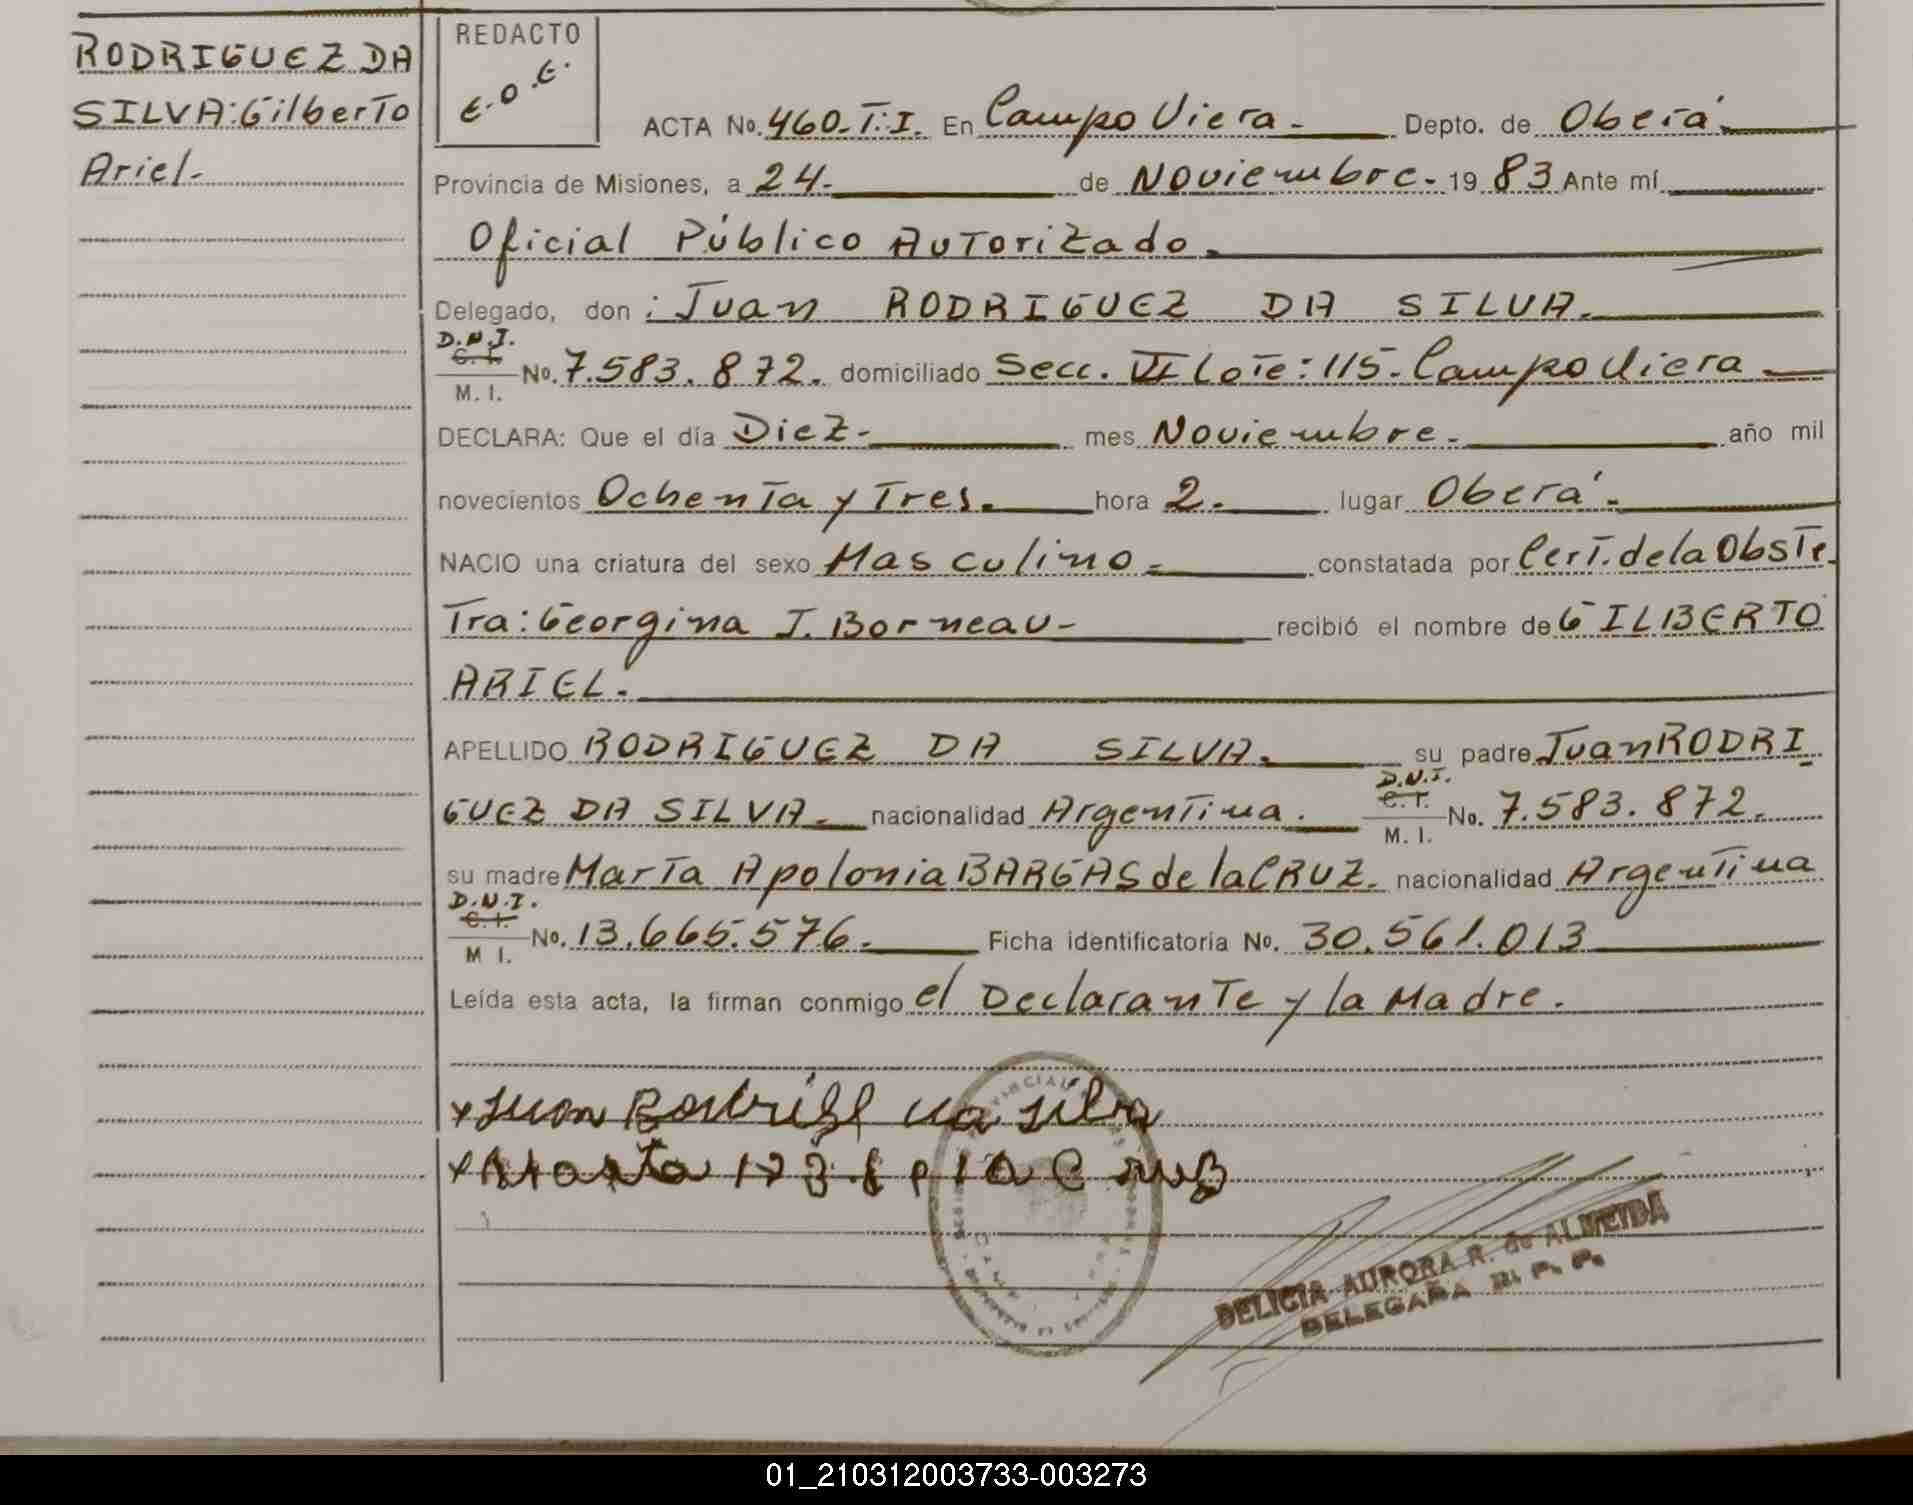 RODRIGUEZ DA
SILVA: Gilberto
Ariel.-
REDACTO
E.O.E.
ACTA No. 460-T:I. En Campo Viera.- Depto. de Oberá.-
Provincia de Misiones, a 24.- de Noviembre.- 19 83 Ante mí
Oficial Público Autorizado.
Delegado, don : Juan RODRIGUEZ DA SILVA.
D.N.I.
C. I.
M. I.
No. 7.583.872. domiciliado Secc. VI Lote: 115- Campo Viera
DECLARA: Que el día Diez.- mes Noviembre.- año mil
novecientos Ochenta y Tres. hora 2.- lugar Oberá.-
NACIO una criatura del sexo Masculino.- constatada por Cert. de la Obste-
Tra: Georgina I. Borneau- recibió el nombre de GILBERTO
ARIEL.
APELLIDO RODRIGUEZ DA SILVA. su padre Juan RODRI
GUEZ DA SILVA.- nacionalidad Argentina. D.N.I.
C. I.
M. I.
No. 7.583.872.
su madre María Apolonia BARGAS de la CRUZ.- nacionalidad Argentina
D.N.I.
C. I.
M I.
No. 13.665.576.- Ficha identificatoria No. 30.561.013
Leída esta acta, la firman conmigo el Declarante y la Madre.
x Juan
DELICIA AURORA R. de ALMEIDA
DELEGADA R. P. P.
01_210312003733-003273